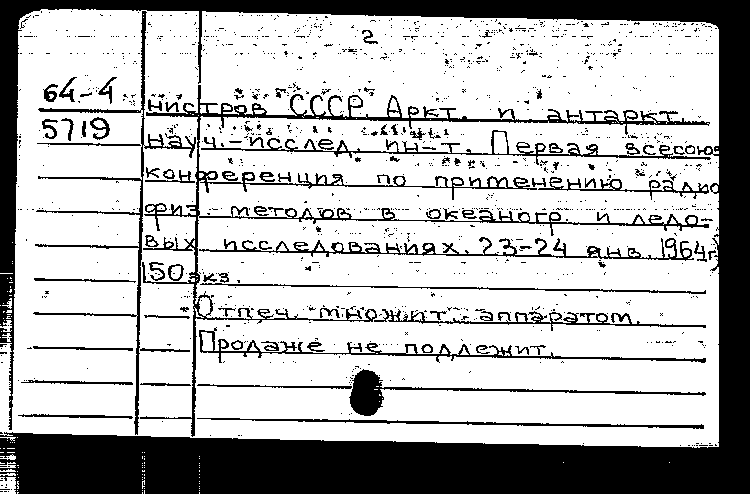 2
64-4
5719
нистров СССР. Аркт. и антаркт.
науч.-исслед. ин-т. Первая всесоюз
конференция по применению радио
физ. методов в океаногр. и ледо-
вых исследованиях. 23-24 янв. 1964г.)
150 экз.
Отпеч. множит. аппаратом.
Продаже не подлежит.